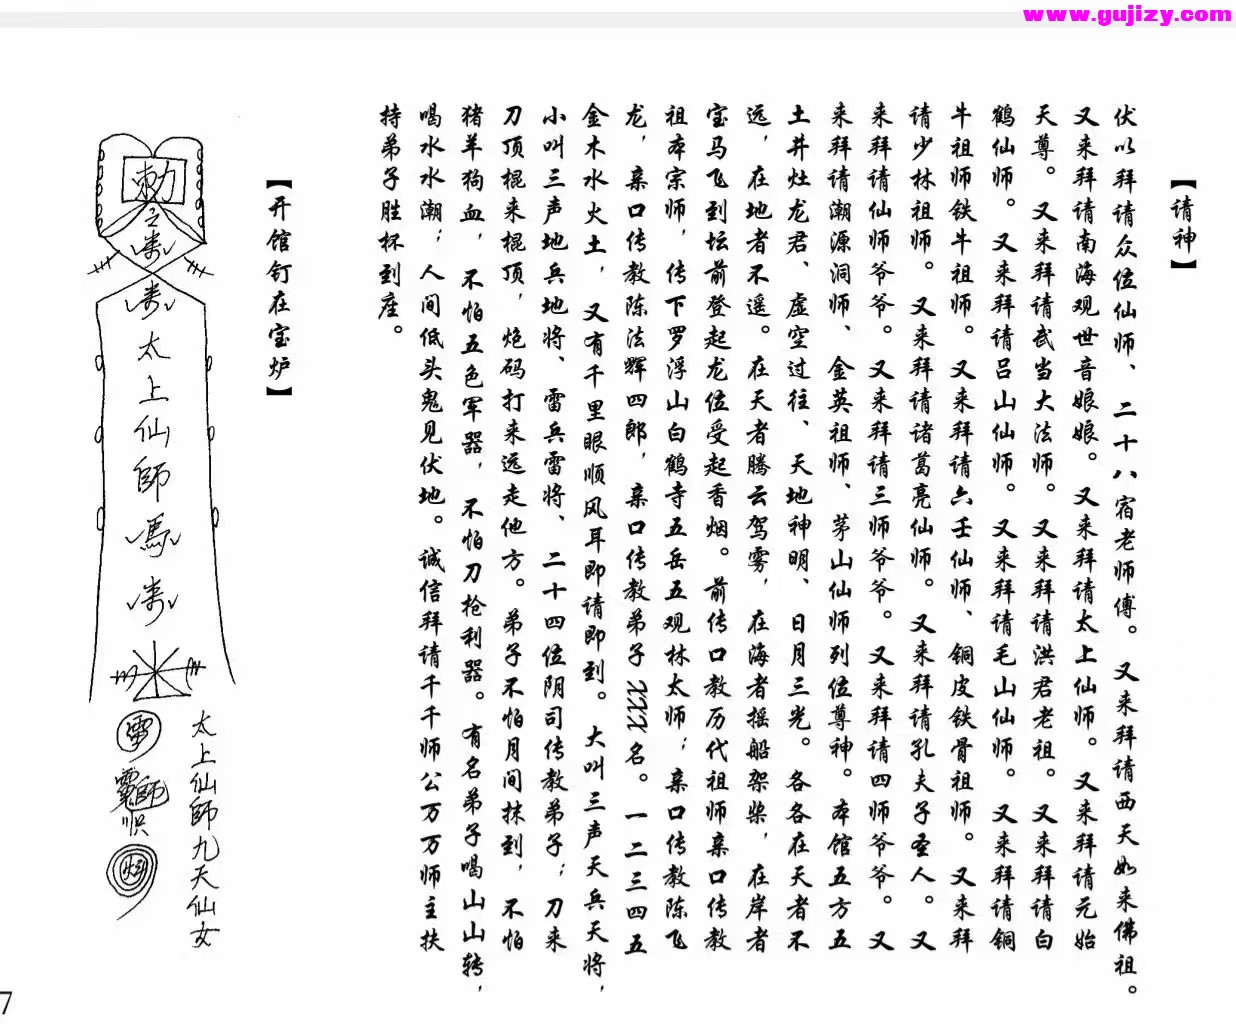 www.gujizy.com
【请神】
伏以拜请众位仙师、二十八宿老师傅。又来拜请西天如来佛祖。
又来拜请南海观世音娘娘。又来拜请太上仙师。又来拜请元始
天尊。又来拜请武当大法师。又来拜请洪君老祖。又来拜请白
鹤仙师。又来拜请吕山仙师。又来拜请毛山仙师。又来拜请铜
牛祖师铁牛祖师。又来拜请六壬仙师、铜皮铁骨祖师。又来拜
请少林祖师。又来拜请诸葛亮仙师。又来拜请孔夫子圣人。又
来拜请仙师爷爷。又来拜请三师爷爷。又来拜请四师爷爷。又
来拜请潮源洞师、金英祖师、茅山仙师列位尊神。本馆五方五
土井灶龙君、虚空过往、天地神明、日月三光。各各在天者不
远，在地者不遥。在天者腾云驾雾，在海者摇船架桨，在岸者
宝马飞到坛前登起龙位受起香烟。前传口教历代祖师亲口传教
祖本宗师，传下罗浮山白鹤寺五岳五观林太师；亲口传教陈飞
龙，亲口传教陈法辉四郎，亲口传教弟子XXX名。一二三四五
金木水火土，又有千里眼顺风耳即请即到。大叫三声天兵天将，
小叫三声地兵地将、雷兵雷将、二十四位阴司传教弟子；刀来
刀顶棍来棍顶，炮码打来远走他方。弟子不怕月间抹到，不怕
猪羊狗血，不怕五色军器，不怕刀枪利器。有名弟子喝山山转，
喝水水潮；人间低头鬼见伏地。诚信拜请千千师公万万师主扶
持弟子胜杯到座。
【开馆钉在宝炉】
勅
太上仙師馬
太上仙師九天仙女
7